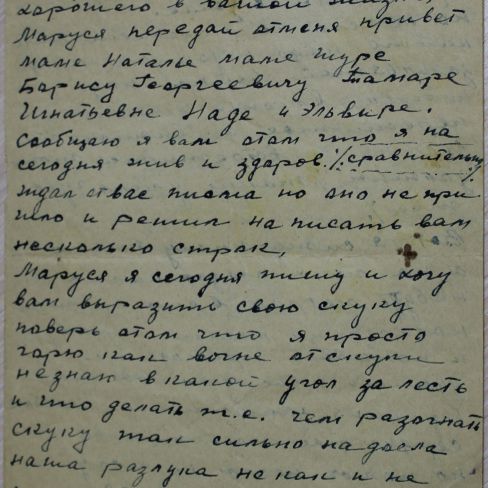 хорошего в вашей жизни
Маруся передай отменя привет
маме Наталье маме Шуре
Борису Георгеевичу Тамаре
Игнатьевне Наде и Эльвире.
сообщаю я вам отам что я на
сегодня жив и здаров: /сравнительно/
ждал отвас писма но ано не при
шло и решил на писать вам
несколько страк,
Маруся я сегодня пишу и хочу
вам выразить свою скуку
поверь отом что я просто
гарю как вогне отскуки
незнаю вкакой угол залесть
и што делать т.е. чем разогнать
скуку так сильно надаела
наша разлука не как и не